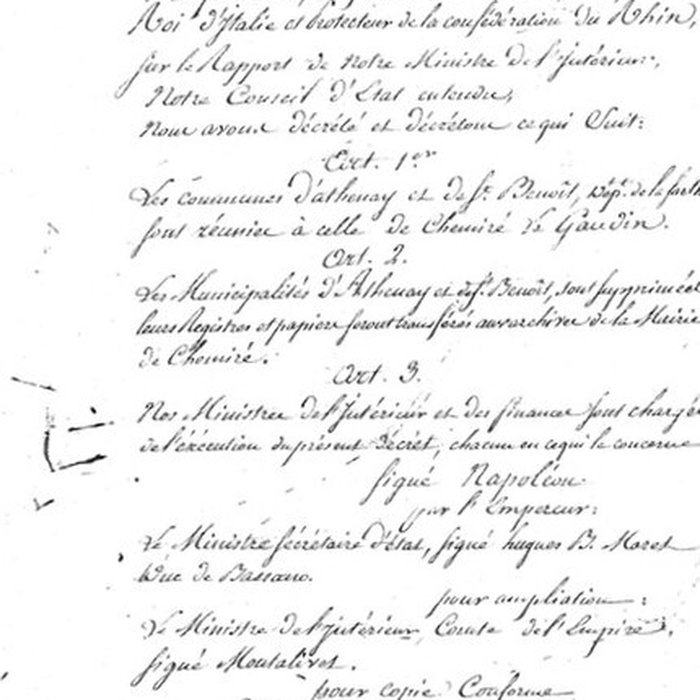 Roi d'Italie et protecteur de la confédération du Rhin,
sur le Rapport de Notre Ministre de l'Intérieur,
Notre Conseil d'Etat entendu,
Nous avons décrété et décrétons ce qui Suit:
Art. 1.er
Les communes d'athenay et de St. Benoît, dépt. de la Sarth
sont réunies à celle de Chemiré le Gaudin.
Art. 2.
Les Municipalités d'Athenay et de St. Benoît, sont supprimées
leurs Registres et papiers seront transférés aux archives de la Mairie
de Chemiré.
Art. 3.
Nos Ministres de l'Intérieur et des finances sont chargé
de l'éxécution du présent Décret, chacun en ce qui le concerne
signé Napoléon.
par l'Empereur:
Le Ministre sécrétaire d'état, signé hugues B. Maret
Duc de Bassano.
pour ampliation:
Le Ministre de l'Intérieur, Comte de l'Empire,
signé Montalivet.
pour copie Conforme